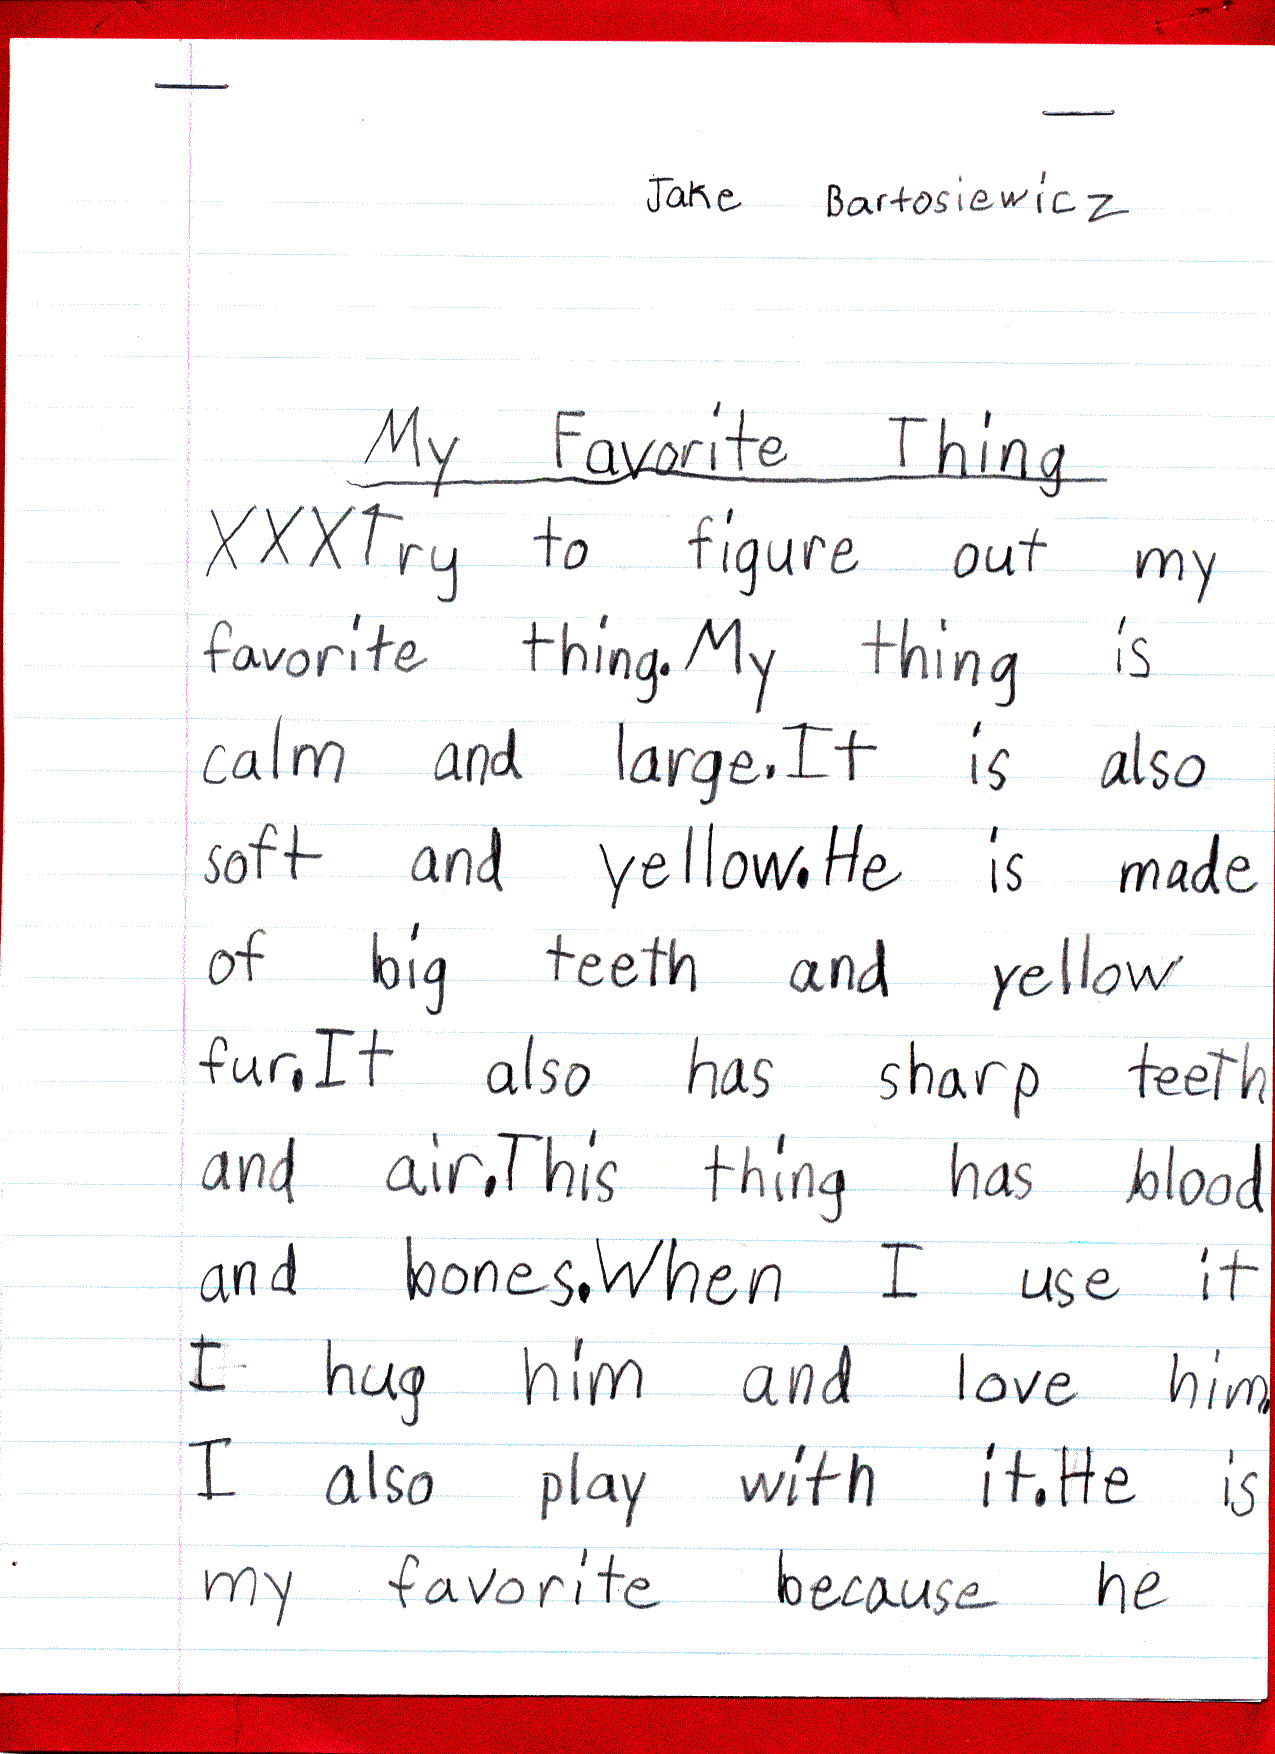 Jake Bartosiewicz
My Favorite Thing
XXXTry to figure out my
favorite thing.My thing is
calm and large.It is also
soft and yellow.He is made
of big teeth and yellow
fur.It also has sharp teeth
and air.This thing has blood
and bones.When I use it
I hug him and love him.
I also play with it.He is
my favorite because he